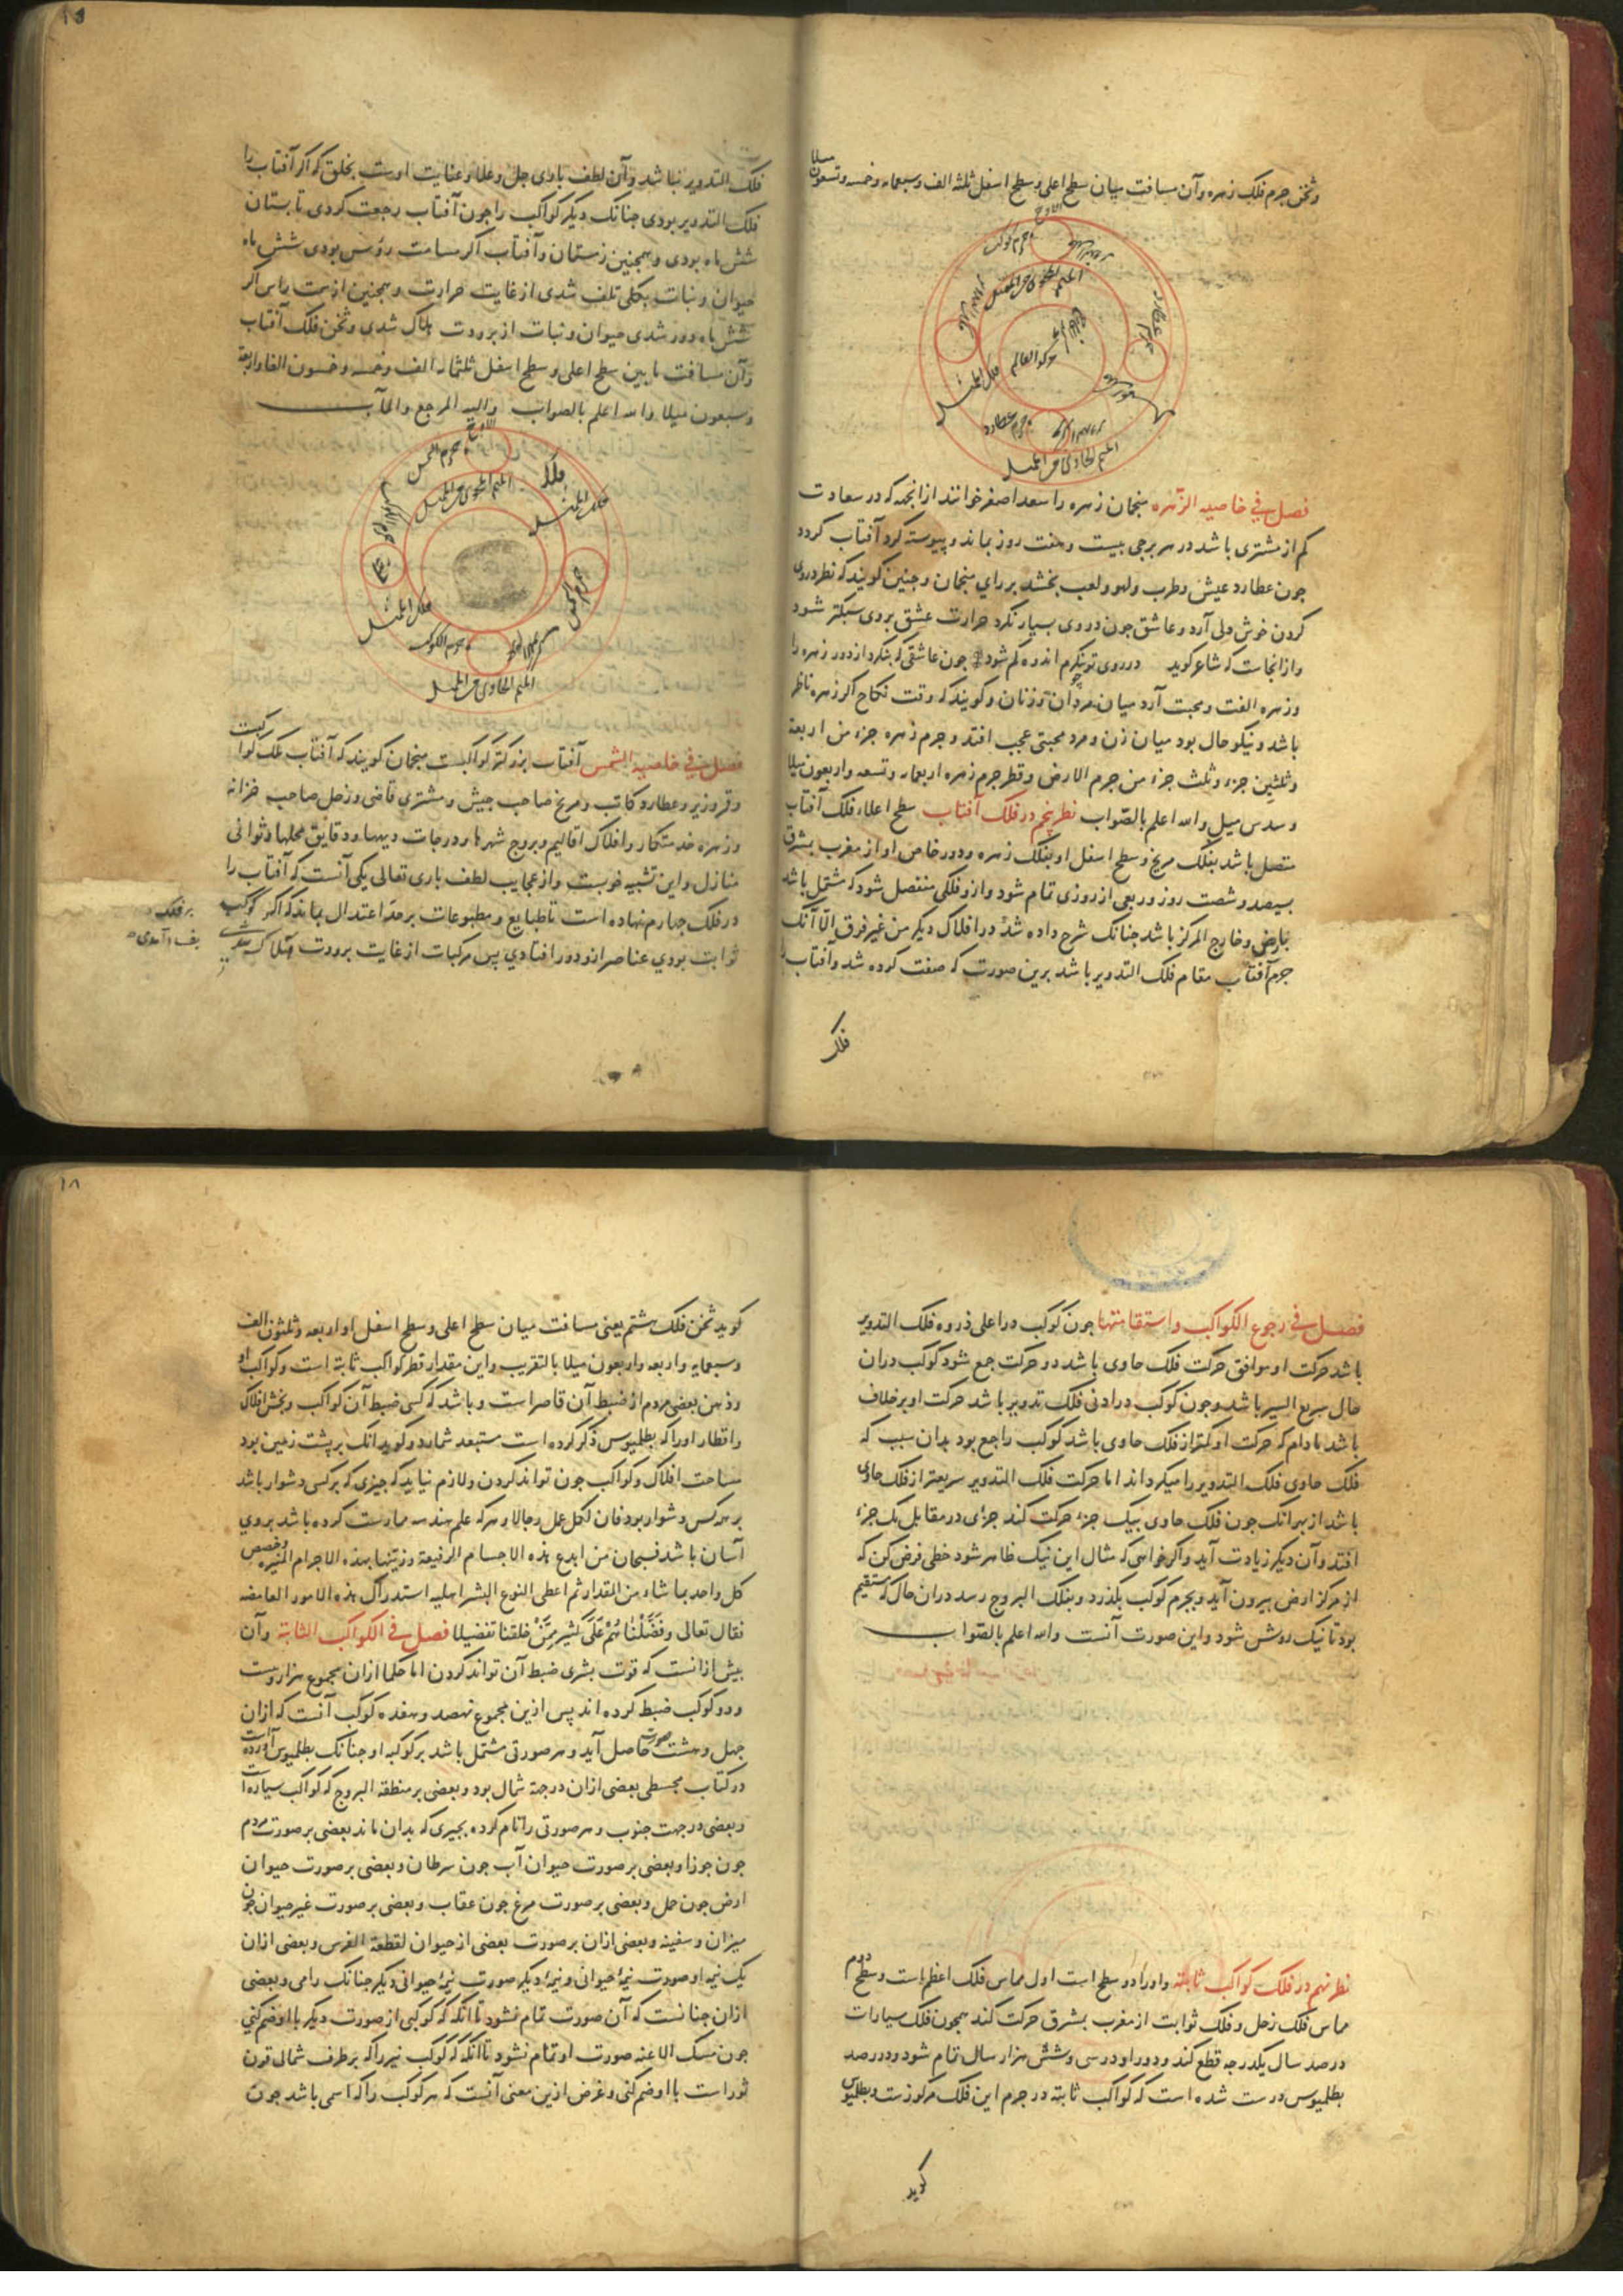 وثخن جرم فلک زهره وآن مسافت میان سطح اعلی وسطح اسفل ثلثه الف وسبعمایه وخمسه وتسعون میلا
الاوج
جرم کوکب
مرکز العالم
فلک الممثل
جرم عطارد
المتمم الحاوی من الممثل
فصل فی خاصیه الزهره منجمان زهره را سعد اصغر خوانند از انجهه که در سعادت
کم از مشتری باشد در هر برجی بیست وهفت روز بماند وپیوسته کرد آفتاب کردد
جون عطارد عیش وطرب ولهو ولعب بخشد بر رای منجمان وجنین کویند که نظر در وی
کردن خوش دلی آرد وعاشق جون در وی بسیار نکرد حرارت عشق بروی سبکتر شود
واز انجاست که شاعر کوید در روی تو بنکرم اندوه کم شود جون عاشقی که بنکرد از دور زهره را
وزهره الفت ومحبت آرد میان مردان وزنان وکویند که وقت نکاح اکر زهره ناظر
باشد ونیکو حال بود میان زن ومرد محبتی عجب افتد وجرم زهره جزء من اربعة
وثلثین جزء وثلث جزء من جرم الارض وقطر جرم زهره اربعمایه وتسعه واربعون میلا
وسدس میل والله اعلم بالصواب نظر پنجم در فلک آفتاب سطح اعلاء فلک آفتاب
متصل باشد بفلک مریخ وسطح اسفل او بفلک زهره ودور خاص او از مغرب بمشرق
بسیصد وشصت روز وربعی از روزی تمام شود واز وفلکی منفصل شود که مشتمل باشد
بارض وخارج المرکز باشد جنانک شرح داده شد در افلاک دیکر من غیر فرق الا آنک
جرم آفتاب مقام فلک التدویر باشد برین صورت که صفت کرده شد وآفتاب را
فلک
فلک التدویر نباشد وآن لطف باری جل وعلا وعنایت اوست بخلق که اکر آفتاب را
فلک التدویر بودی جنانک دیکر کواکب را جون آفتاب رجعت کردی تابستان
شش ماه بودی وهمجنین زمستان وآفتاب اکر مسامت رؤس بودی شش ماه
حیوان ونبات بکلی تلف شدی از غایت حرارت وهمجنین از سمت راس اکر
شش ماه دور شدی حیوان ونبات از برودت هلاک شدی وثخن فلک آفتاب
وآن مسافت مابین سطح اعلی وسطح اسفل ثلثمایه الف وخمسه وخمسون الفا واربعة
وسبعون میلا والله اعلم بالصواب والیه المرجع والمآب
الاوج
جرم الشمس
المتمم المحوی من الممثل
فلک الممثل
فلک الممثل
جرم الکوکب
المتمم الحاوی من الممثل
فصل فی خاصیه الشمس آفتاب بزرکتر کواکبست منجمان کویند که آفتاب ملک کواکبست
وقمر وزیر وعطارد کاتب ومریخ صاحب جیش ومشتری قاضی وزحل صاحب خزانه
وزهره خدمتکار وافلاک اقالیم وبروج شهرها ودرجات دیهها ودقایق محلها وثوانی
منازل واین تشبیه خوبست واز عجایب لطف باری تعالی یکی آنست که آفتاب را
در فلک جهارم نهاده است تا طبایع ومطبوعات بر حد اعتدال بماند که اکر کوکب
ثوابت بودی عناصر از و دور افتادی پس مرکبات از غایت برودت هلاک شدی
۱۸
فصل فی رجوع الکواکب واستقامتها جون کوکب در اعلی ذروه فلک التدویر
باشد حرکت او موافق حرکت فلک حاوی باشد دو حرکت جمع شود کوکب دران
حال سریع السیر باشد وجون کوکب در ادنی فلک تدویر باشد حرکت او بر خلاف
باشد مادام که حرکت او کمتر از فلک حاوی باشد کوکب راجع بود بدان سبب که
فلک حاوی فلک التدویر را میکرداند اما حرکت فلک التدویر سریعتر از فلک حاوی
باشد از بهر انک جون فلک حاوی بیک جزء حرکت کند جزءی در مقابل یک جزء
افتد وآن دیکر زیادت آید واکر خواهی که مثال این نیک ظاهر شود خطی فرض کن که
از مرکز ارض بیرون آید وبجرم کوکب بکذرد وبفلک البروج رسد دران حال که مستقیم
بود تا نیک روشن شود واین صورت آنست والله اعلم بالصواب
نظر نهم در فلک کواکب ثابته واورا دو سطح است اول مماس فلک اعظم است وسطح دوم
مماس فلک زحل وفلک ثوابت از مغرب بمشرق حرکت کند همجون فلک سیارات
در صد سال یکدرجه قطع کند ودور او در سی وشش هزار سال تمام شود ودر رصد
بطلمیوس درست شده است که کواکب ثابته در جرم این فلک مرکوزست وبطلمیوس
کوید
کوید ثخن فلک هشتم یعنی مسافت میان سطح اعلی وسطح اسفل او اربعه وثلثون الف
وسبعمایه واربعه واربعون میلا بالتقریب واین مقدار قطر کواکب ثابته است وکواکب او
وذهن بعضی مردم از ضبط آن قاصر است وباشد که کسی ضبط آن کواکب وبخش افلاک
واقطار اورا که بطلمیوس ذکر کرده است مستبعد شمارد وکوید آنک بر پشت زمین بود
مساحت افلاک وکواکب جون تواند کردن ولازم نیاید که جیزی که بر کسی دشوار باشد
بر همه کس دشوار بود فان لکل عمل رجالا وهر که علم هندسه ممارست کرده باشد بروی
آسان باشد فسبحان من ابدع هذه الاجسام الرفیعة وزینها بهذه الاجرام المنیره وخصص
کل واحد بما شاء من المقدار ثم اعطی النوع البشر اهلیه استدراک هذه الامور الغامضه
فقال تعالی وفضلناهم علی کثیر ممن خلقنا تفضیلا فصل فی الکواکب الثابتة وآن
بیش ازانست که قوت بشری ضبط آن تواند کردن اما حکما ازان مجموع هزار وبیست
ودو کوکب ضبط کرده اند پس ازین مجموع نهصد وهفده کوکب آنست که ازان
جهل وهشت صورت حاصل آید وهر صورتی مشتمل باشد بر کوکبه او جنانک بطلمیوس آورده است
در کتاب مجسطی بعضی ازان در جهة شمال بود وبعضی بر منطقه البروج که کواکب سیاره است
وبعضی در جهت جنوب وهر صورتی را نام کرده بجیزی که بدان ماند بعضی بر صورت مردم
جون جوزا وبعضی بر صورت حیوان آب جون سرطان وبعضی بر صورت حیوان
ارض جون حمل وبعضی بر صورت مرغ جون عقاب وبعضی بر صورت غیر حیوان جون
میزان وسفینه وبعضی ازان بر صورت بعضی از حیوان لقطعة الفرس وبعضی ازان
یک نیمه او صورت نیمهٔ حیوان ونیمهٔ دیکر صورت نیمهٔ حیوانی دیکر جنانک رامی وبعضی
ازان جنانست که آن صورت تمام نشود تا آنکه که کوکبی از صورت دیکر با او ضم کنی
جون ممسک الاعنه صورت او تمام نشود تا آنکه که کوکب نیر را که بر طرف شمالی قرن
ثور است با او ضم کنی وغرض ازین معنی آنست که هر کوکب را که اسمی باشد جون